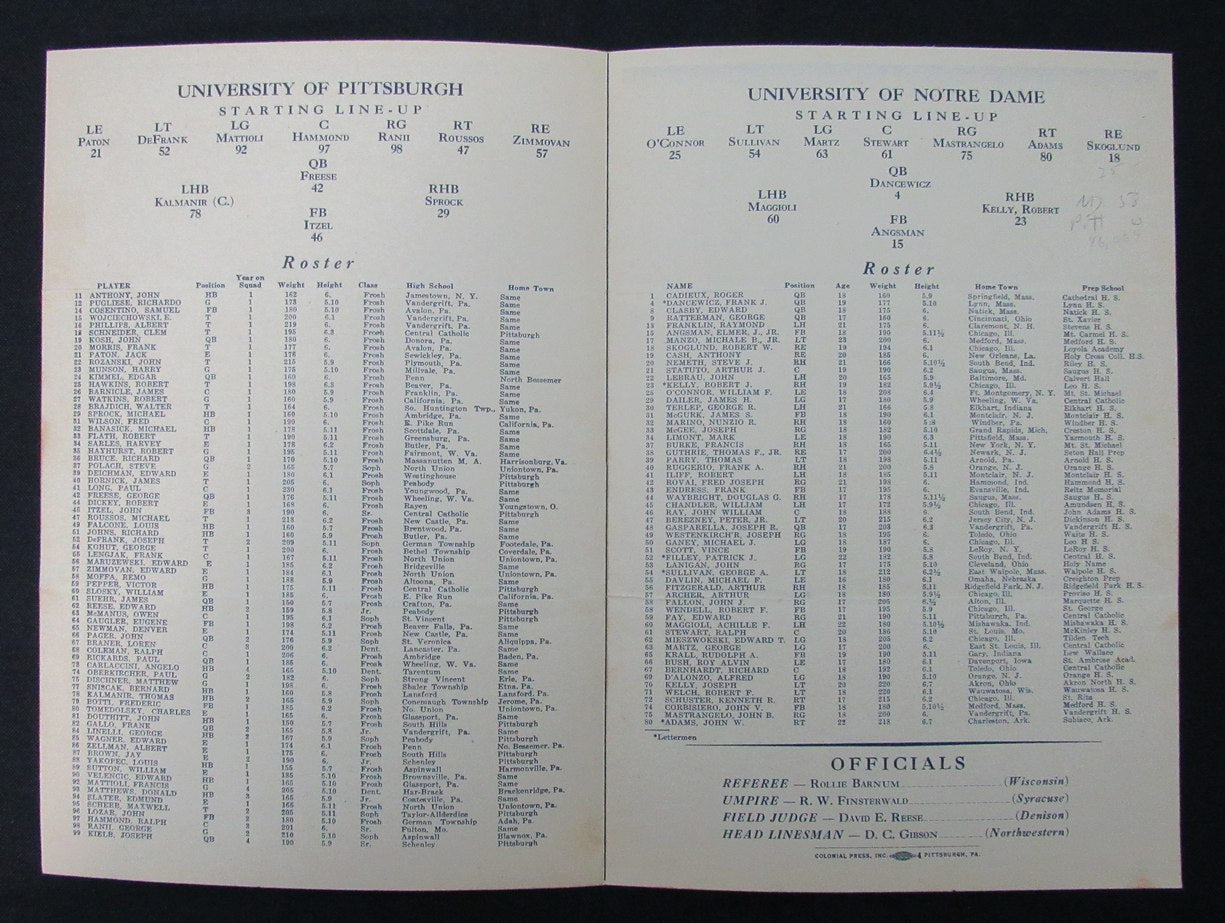 UNIVERSITY OF PITTSBURGH
STARTING LINE-UP
LE LT LG C RG RT RE
PATON DEFRANK MATTIOLI HAMMOND RANII ROUSSOS ZIMMOVAN
21 52 92 97 98 47 57
QB
FREESE
42
LHB RHB
KALMANIR (C.) SPROCK
78 29
FB
ITZEL
46
Roster
PLAYER Position Year on Squad Weight Height Class High School Home Town
11 ANTHONY, JOHN HB 1 162 6. Frosh Jamestown, N. Y. Same
12 PUGLIESE, RICHARDO G 1 173 5.10 Frosh Vandergrift, Pa. Same
14 COSENTINO, SAMUEL FB 1 180 5.10 Frosh Avalon, Pa. Same
15 WOJCIECHOWSKI, E. T 1 200 6.1 Frosh Vandergrift, Pa. Same
16 PHILLIPS, ALBERT T 1 219 6. Frosh Vandergrift, Pa. Same
18 SCHNEIDER, CLEM T 1 195 6. Frosh Central Catholic Pittsburgh
19 KOSH, JOHN QB 1 180 6. Frosh Donora, Pa. Same
20 MORRIS, FRANK T 1 177 6. Frosh Avalon, Pa. Same
21 PATON, JACK E 1 176 6. Frosh Sewickley, Pa. Same
22 ROZANSKI, JOHN T 1 215 5.9 Frosh Plymouth, Pa. Same
23 MUNSON, HARRY G 1 175 5.10 Frosh Millvale, Pa. Same
24 KIMMEL, EDGAR QB 1 160 6. Frosh Penn North Bessemer
25 HAWKINS, ROBERT T 1 198 6.3 Frosh Beaver, Pa. Same
26 BARNICLE, JAMES C 1 180 5.9 Frosh Franklin, Pa. Same
27 WATKINS, ROBERT G 1 160 5.9 Frosh California, Pa. Same
28 BRAJDICH, WALTER T 1 164 6. Frosh So. Huntington Twp., Yukon, Pa.
29 SPROCK, MICHAEL HB 1 196 5.10 Frosh Ambridge, Pa. Same
31 WILSON, FRED C 1 199 6. Frosh E. Pike Run California, Pa.
32 BANASICK, MICHAEL HB 1 178 5.11 Frosh Scottdale, Pa. Same
33 FLATH, ROBERT T 1 199 5.11 Frosh Greensburg, Pa. Same
34 SARLES, HARVEY E 1 178 6.2 Frosh Butler, Pa. Same
35 HAYHURST, ROBERT G 1 195 5.11 Frosh Fairmont, W. Va. Same
36 BRUCE, RICHARD QB 1 176 5.10 Frosh Massanutten M. A. Harrisonburg, Va.
37 POLACH, STEVE G 2 165 5.7 Soph North Union Uniontown, Pa.
39 DEICHMAN, EDWARD E 1 180 6.1 Frosh Westinghouse Pittsburgh
40 HORNICK, JAMES T 1 205 6. Soph Peabody Pittsburgh
41 LONG, PAUL C 1 230 6.1 Frosh Youngwood, Pa. Same
42 FREESE, GEORGE QB 1 176 5.11 Frosh Wheeling, W. Va. Same
44 DICKEY, ROBERT E 1 168 6. Frosh Rayen Youngstown, O.
46 ITZEL, JOHN FB 3 190 6. Sr. Central Catholic Pittsburgh
47 ROUSSOS, MICHAEL T 1 218 6.2 Frosh New Castle, Pa. Same
49 FALCONE, LOUIS HB 1 160 5.7 Frosh Brentwood, Pa. Same
51 JOHNS, RICHARD HB 1 160 5.9 Frosh Butler, Pa. Same
52 DEFRANK, JOSEPH T 2 209 5.11 Soph German Township Footedale, Pa.
54 KOHUT, GEORGE T 1 200 6. Frosh Bethel Township Coverdale, Pa.
55 LENGJAK, FRANK C 1 187 5.11 Frosh North Union Uniontown, Pa.
56 MARUZEWSKI, EDWARD E 1 185 6.2 Frosh Bridgeville Same
57 ZIMMOVAN, EDWARD E 1 184 5.11 Frosh North Union Uniontown, Pa.
58 MOFFA, REMO G 1 188 5.9 Frosh Altoona, Pa. Same
59 PEPPER, VICTOR HB 1 175 5.11 Frosh Central Catholic Pittsburgh
60 SLOSKY, WILLIAM E 1 185 6. Frosh E. Pike Run California, Pa.
61 SUEHR, JAMES QB 1 150 5.7 Frosh Crafton, Pa. Same
62 REESE, EDWARD HB 2 159 5.8 Jr. Peabody Pittsburgh
63 McMANUS, OWEN C 1 195 6. Soph St. Vincent Pittsburgh
64 GAUGLER, EUGENE FB 1 198 6.2 Frosh Beaver Falls, Pa. Same
65 NEWMAN, DENVER E 1 174 5.11 Frosh New Castle, Pa. Same
66 PAGER, JOHN QB 2 176 5. Soph St. Veronica Aliquippa, Pa.
67 BRANER, LOREN C 3 206 6.2 Dent. Lancaster, Pa. Same
68 COLEMAN, RALPH C 1 206 6. Frosh Ambridge Baden, Pa.
69 RICKARDS, PAUL QB 1 185 6. Frosh Wheeling, W. Va. Same
73 CARLACCINI, ANGELO HB 4 165 5.10 Dent. Tarentum Same
74 OBERKIRCHER, PAUL G 2 185 6. Soph Strong Vincent Erie, Pa.
75 DIRCHNER, MATTHEW G 1 198 6. Frosh Shaler Township Etna, Pa.
77 SNISCAK, BERNARD HB 1 160 5.8 Frosh Lansford Lansford, Pa.
78 KALMANIR, THOMAS HB 1 165 5.9 Soph Conemaugh Township Jerome, Pa.
79 BOTTI, FREDERIC FB 1 185 6.2 Frosh No. Union Uniontown, Pa.
80 TOMEDOLSKY, CHARLES E 1 165 6. Frosh Glassport, Pa. Same
81 DOUTHITT, JOHN HB 1 150 5.7 Frosh South Hills Pittsburgh
82 GALLO, FRANK QB 2 165 5.8 Jr. Vandergrift, Pa. Same
84 LINELLI, GEORGE HB 2 167 5.9 Soph Peabody Pittsburgh
85 WAGNER, EDWARD HB 1 174 6.1 Frosh Penn No. Bessemer, Pa.
86 ZELLMAN, ALBERT E 1 175 6. Frosh South Hills Pittsburgh
87 BROWN, JAY E 2 190 6. Jr. Schenley Pittsburgh
88 YAKOPEC, LOUIS E 1 155 5.7 Frosh Aspinwall Harmonville, Pa.
89 SUTTON, WILLIAM HB 1 185 5.10 Frosh Brownsville, Pa. Same
90 VELENCIC, EDWARD G 1 165 5.10 Frosh Glassport, Pa. Same
92 MATTIOLI, FRANCIS G 4 205 5.10 Dent. Har-Brack Brackenridge, Pa.
93 MATTHEWS, DONALD HB 3 165 5.9 Jr. Coatesville, Pa. Same
94 SLATER, EDMUND E 1 165 5.11 Frosh North Union Uniontown, Pa.
95 SCHERB, MAXWELL T 2 205 5.11 Soph Taylor-Allderdice Pittsburgh
96 LOZAR, JOHN FB 2 180 5.10 Frosh German Township Adah, Pa.
97 HAMMOND, RALPH C 3 201 6. Sr. Fulton, Mo. Same
98 RANII, GEORGE G 2 210 5.10 Soph Aspinwall Blawnox, Pa.
99 KIELB, JOSEPH QB 4 190 5.9 Sr. Schenley Pittsburgh
UNIVERSITY OF NOTRE DAME
STARTING LINE-UP
LE LT LG C RG RT RE
O'CONNOR SULLIVAN MARTZ STEWART MASTRANGELO ADAMS SKOGLUND
25 54 63 61 75 80 18
QB
DANCEWICZ
4
LHB RHB
MAGGIOLI KELLY, ROBERT
60 23
FB
ANGSMAN
15
ND 58
Pitt 0
Roster
NAME Position Age Weight Height Home Town Prep School
1 CADIEUX, ROGER QB 18 160 5.9 Springfield, Mass. Cathedral H. S.
4 *DANCEWICZ, FRANK J. QB 19 177 5.10 Lynn, Mass. Lynn H. S.
8 CLASBY, EDWARD QB 18 175 6. Natick, Mass. Natick H. S.
9 RATTERMAN, GEORGE QB 17 160 6. Cincinnati, Ohio St. Xavier
13 FRANKLIN, RAYMOND LH 21 175 6. Claremont, N. H. Stevens H. S.
15 ANGSMAN, ELMER, J., JR. FB 18 190 5.11½ Chicago, Ill. Mt. Carmel H. S.
17 MANZO, MICHALE B., JR. LT 23 200 6. Medford, Mass. Medford H. S.
18 SKOGLUND, ROBERT W. RE 19 194 6.1 Chicago, Ill. Loyola Academy
19 CASH, ANTHONY RE 20 185 6. New Orleans, La. Holy Cross Coll. H.S.
20 NEMETH, STEVE J. RH 21 166 5.10½ South Bend, Ind. Riley H. S.
21 STATUTO, ARTHUR J. C 19 190 6.2 Saugus, Mass. Saugus H. S.
22 LEBRAU, JOHN LH 20 165 5.9 Baltimore, Md. Calvert Hall
23 *KELLY, ROBERT J. RH 19 182 5.9½ Chicago, Ill. Leo H. S.
25 O'CONNOR, WILLIAM F. LE 18 208 6.4 Ft. Montgomery, N. Y. Mt. St. Michael
29 DAILER, JAMES H. LG 17 180 5.9 Wheeling, W. Va Central Catholic
30 TERLEP, GEORGE R. LH 21 166 5.8 Elkhart, Indiana Elkhart H. S.
31 McGURK, JAMES S. FB 18 190 6.1 Montclair, N. J. Montclair H. S.
32 MARINO, NUNZIO R. RH 18 160 5.8 Windber, Pa. Windber H. S.
33 McGEE, JOSEPH RG 18 182 5.10 Grand Rapids, Mich. Creston H. S.
34 LIMONT, MARK LE 18 190 6.3 Pittsfield, Mass. Yarmouth H. S.
37 BURKE, FRANCIS RH 16 165 5.11 New York, N. Y. Mt. St. Michael
38 GUTHRIE, THOMAS F., JR. RE 17 200 6.4½ Newark, N. J. Seton Hall Prep
39 PARRY, THOMAS LT 18 198 5.11 Arnold, Pa. Arnold H. S.
40 RUGGERIO, FRANK A. RH 21 200 5.8 Orange, N. J. Orange H. S.
41 ILIFF, ROBERT LH 18 185 5.11 Montclair, N. J. Montclair H. S.
42 ROVAI, FRED JOSEPH RG 21 198 6. Hammond, Ind. Hammond H. S.
43 ENDRESS, FRANK FB 17 195 6. Evansville, Ind. Reitz Memorial
44 WAYBRIGHT, DOUGLAS G. RH 17 178 5.11½ Saugus, Mass. Saugus H. S.
45 CHANDLER, WILLIAM LH 17 172 5.9½ Chicago, Ill. Amundsen H. S.
46 RAY, JOHN WILLIAM C 18 188 6. South Bend, Ind. John Adams H. S.
47 BEREZNEY, PETER, JR. LT 20 215 6.2 Jersey City, N. J. Dickinson H. S.
48 GASPARELLA, JOSEPH R. QB 17 203 6.3 Vandergrift, Pa. Vandergrift H. S.
49 WESTENKIRCH'R, JOSEPH RG 18 195 6. Toledo, Ohio Waite H. S.
50 GANEY, MICHAEL J. LG 18 187 6. Chicago, Ill. Leo H. S.
51 SCOTT, VINCE FB 19 190 5.8 LeRoy, N. Y. LeRoy H. S.
52 *FILLEY, PATRICK J. LG 22 182 5.8 South Bend, Ind. Central H. S.
53 LANIGAN, JOHN RG 17 175 5.10 Cleveland, Ohio Holy Name
54 *SULLIVAN, GEORGE A. LT 18 212 6.2½ East Walpole, Mass. Walpole H. S.
55 DAVLIN, MICHAEL F. LE 16 180 6.1 Omaha, Nebraska Creighton Prep
56 FITZGERALD, ARTHUR RH 18 185 5.11 Ridgefield Park, N. J. Ridgefield Park H. S.
57 ARCHER, ARTHUR LG 18 180 5.9½ Chicago, Ill. Proviso H. S.
58 FALLON, JOHN J. RG 17 205 6.½ Alton, Ill. Marquette H. S.
58 WENDELL, ROBERT F. FB 17 195 5.9 Chicago, Ill. St. George
59 FAY, EDWARD RG 21 190 5.11 Pittsburgh, Pa. Central Catholic
60 MAGGIOLI, ACHILLE F. LH 22 180 5.10½ Mishawaka, Ind. Mishawaka H. S.
61 STEWART, RALPH C 20 186 5.10 St. Louis, Mo. McKinley H. S.
62 MIESZKOWSKI, EDWARD T. LG 18 205 6.2 Chicago, Ill. Tilden Tech
63 MARTZ, GEORGE LG 17 200 6. East St. Louis, Ill. Central Catholic
65 KRALL, RUDOLPH A. FB 19 190 5.11 Gary, Indiana Lew Wallace
66 BUSH, ROY ALVIN LE 17 180 6.1 Davenport, Iowa St. Ambrose Acad.
67 BERNHARDT, RICHARD C 18 192 6.1 Toledo, Ohio Central Catholic
69 D'ALONZO, ALFRED LG 19 190 5.10 Orange, N. J. Orange H. S.
70 KELLY, JOSEPH LT 20 220 6.7 Akron, Ohio Akron North H. S.
71 WELCH, ROBERT F. LT 18 220 6.1 Wauwatosa, Wis. Wauwatosa H. S.
72 SCHUSTER, KENNETH R. RT 17 215 6.2 Chicago, Ill. St. Rita
74 CORBISIERO, JOHN V. FB 18 180 5.10½ Medford, Mass. Medford H. S.
75 MASTRANGELO, JOHN B. RG 18 200 6. Vandergrift, Pa. Vandergrift H. S.
80 *ADAMS, JOHN W. RT 22 218 6.7 Charleston, Ark. Subiaco, Ark.
*Lettermen
OFFICIALS
REFEREE — ROLLIE BARNUM (Wisconsin)
UMPIRE — R. W. FINSTERWALD (Syracuse)
FIELD JUDGE — DAVID E. REESE (Denison)
HEAD LINESMAN — D. C. GIBSON (Northwestern)
COLONIAL PRESS, INC. 4 PITTSBURGH, PA.